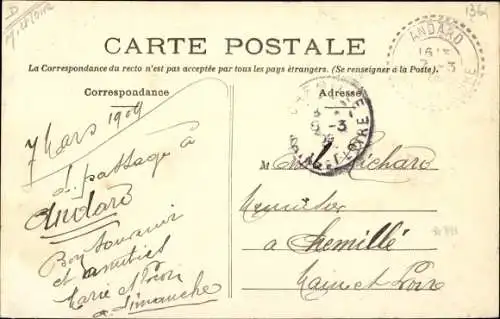 1364
ANDARD
16
3
CARTE POSTALE
La Correspondance du recto n'est pas acceptée par tous les pays étrangers. (Se renseigner à la Poste).
Correspondance
Adresse
7 Mars 1909
de passage à
Andard
Bon souvenir
et amitiés
Marie et
à Dimanche
M Richard
Menuisier
a Chemillé
Maine et Loire